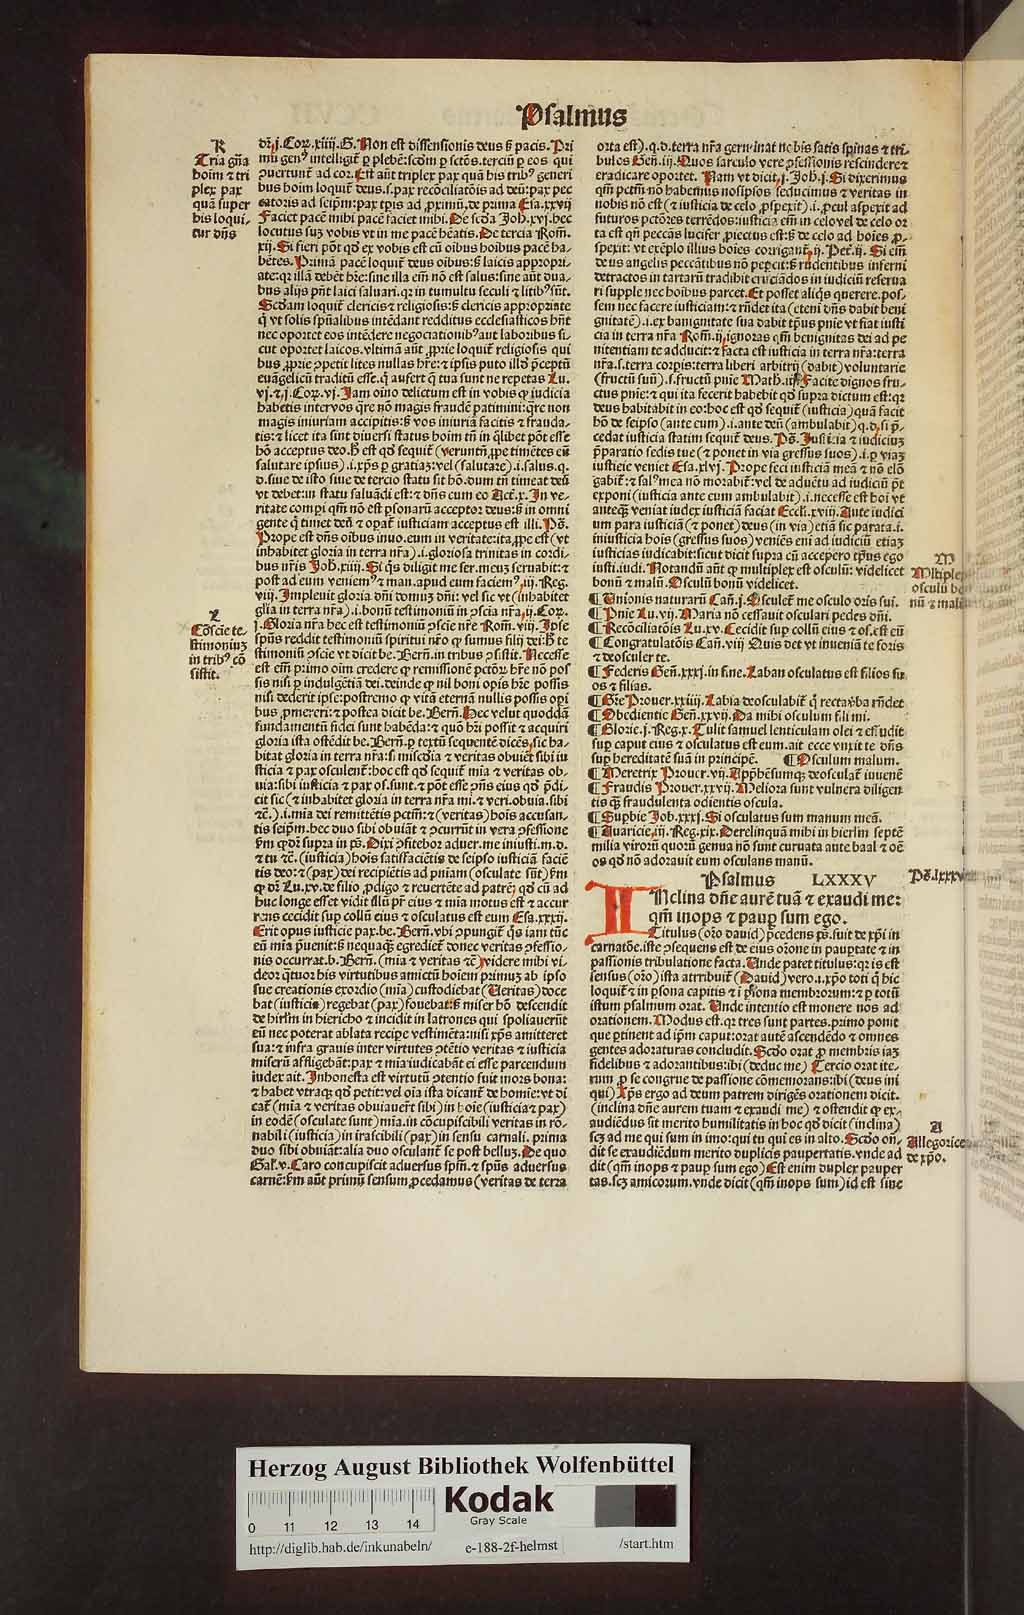 Psalmus
K
Tria gn̄a
hoim̄ & tri
plex pax
quā super
his loqui-
tur dn̄s
dr̄.j.Coꝝ.xiiij.G.Non est dissensionis deus sꝫ pacis.Pri
mū genꝰ intelligit̄ ꝑ plebē:scd̄m ꝑ sctōs.terciū ꝑ eos qui
ↄuertunt̄ ad cor.Est aūt triplex pax quā his tribꝰ generi
bus hoim̄ loquit̄ deus.s.pax recōciliatōis ad deū:pax pec
catoris ad seip̄m:pax tp̄is ad ꝓximū,de prima Esa.xxvij
Faciet pacē mihi pacē faciet mihi.De scd̄a Joh.xvj.hec
locutus suꝫ vobis vt in me pacē hēatis.De tercia Rom̄.
xij.Si fieri pōt qd̄ ex vobis est cū oībus hoībus pacē ha-
bētes.Primā pacē loquit̄ deus oībus:sꝫ laicis appropri-
ate:qꝛ illā debēt hr̄e:sine illa em̄ nō est salus:sine aūt dua-
bus alijs pn̄t laici saluari.qꝛ in tumultu seculi & litibꝰ sūt.
Scd̄am loquit̄ clericis & religiosis:sꝫ clericis appropriate
q̄ vt solis spūalibus intēdant redditus ecclesiasticos hn̄t
nec oportet eos intēdere negociationibꝰ aut laboribus si-
cut oportet laicos.vltimā aūt ꝓprie loquit̄ religiosis qui
bus ꝓprie ↄpetit lites nullas hr̄e:& ipsis puto illd̄ p̄ceptū
euāgelicū traditū esse.q̄ aufert q̄ tua sunt ne repetas Lu.
vj.&.j.Coꝝ.vj.Jam oīno delictum est in vobis ꝙ iudicia
habetis inter vos q̄re nō magis fraudē patimini:q̄re non
magis iniuriam accipitis:sꝫ vos iniuriā facitis & frauda-
tis:& licet ita sint diuersi status hoim̄ tn̄ in q̄libet pōt esse
hō acceptus deo.hꝰ est qd̄ sequit̄ (veruntn̄ ꝓpe timētes eū
salutare ipsius).i.xp̄s ꝑ gratiaꝫ:vel (salutare).i.salus.q.
d.siue de isto siue de tercio statu sit hō.dum tn̄ timeat deū
vt debet:in statu saluādi est:& dn̄s cum eo Act̄.x.In ve-
ritate comꝑi qm̄ nō est ꝑsonarū acceptor deus:sꝫ in omni
gente q̄ timet deū & oꝑat̄ iusticiam acceptus est illi.Ps̄.
Prope est dn̄s oībus inuo.eum in veritate:ita ꝓpe est (vt
inhabitet gloria in terra nr̄a).i.gloriosa trinitas in cordi-
bus nr̄is Joh.xiiij.Si q̄s diligit me ser.meuꝫ seruabit:&
post ad eum veniemꝰ & man.apud eum faciemꝰ,iij.Reg.
viij.Impleuit gloria dn̄i domuꝫ dn̄i:vel sic vt (inhabitet
glīa in terra nr̄a).i.bonū testimoniū in ↄscia nr̄a,ij.Coꝝ.
j.Gloria nr̄a hec est testimoniū ↄscie nr̄e Rom̄.viij.Ipse
spūs reddit testimoniū spiritui nr̄o ꝙ sumus filij dei:hꝰ te
stimoniū ↄscie vt dicit be.Bern̄.in tribus ↄsistit.Necesse
L
Cōscie te-
stimoniuꝫ
in tribꝰ cō
sistit.
est em̄ primo oīm credere ꝙ remissionē pctōꝝ hr̄e nō pos
sis nisi ꝑ indulgētiā dei.deinde ꝙ nil boni opis hr̄e possis
nisi dederit ipse:postremo ꝙ vitā eternā nullis possis opi
bus ꝓmereri:& postea dicit be.Bern̄.Hec velut quoddā
fundamentū fidei sunt habēda:& quō hr̄i possit & acquiri
gloria ista ostēdit be.Bern̄.ꝑ textū sequentē dicēs,sic ha-
bitat gloria in terra nr̄a:si misc̄dia & veritas obuiēt sibi iu
sticia & pax osculent̄:hoc est qd̄ sequit̄ mīa & veritas ob-
uia:sibi iusticia & pax os.sunt.& pōt esse ↄn̄s eius qd̄ p̄di-
cit sic (& inhabitet gloria in terra nr̄a mi.& veri.obuia.sibi
&c̄.).i.mīa dei remittētis pctm̄:& (veritas) hoīs accusan-
tis seip̄m.hec duo sibi obuiāt & ↄcurrūt in vera ↄfessione
s̄m ꝙ dr̄ supra in ps̄.Dixi ↄfitebor aduer.me iniusti.m.d.
& tu &c̄.(iusticia) hoīs satisfaciētis de seipso iusticiā faciē
tis deo:& (pax) dei recipiētis ad pn̄iam (osculate sūt) s̄m
ꝙ dr̄ Lu.xv.de filio ꝓdigo & reuertēte ad patrē,qd̄ cū ad
huc longe esset vidit illū pr̄ eius & mīa motus est & accur
rens cecidit sup collū eius & osculatus est eum Esa.xxxij.
Erit opus iusticie pax.be.Bern̄.vbi ↄpungit̄ q̄s iam tūc
eū mīa p̄uenit:sꝫ nequaq̄ꝫ egrediet̄ donec veritas ↄfessio-
nis occurrat.b.Bern̄.(mīa & veritas &c̄) videre mihi vi-
deor q̄tuor his virtutibus amictū hoīem primuꝫ ab ipso
sue creationis exordio (mīa) custodiebat (Veritas) doce
bat (iusticia) regebat (pax) fouebat:sꝫ miser hō descendit
de hirl̄m in hiericho & incidit in latrones qui spoliauerūt
eū nec poterat ablata reciꝑe vestimēta:nisi xp̄s amitteret
sua:& infra grauis inter virtutes ↄtētio veritas & iusticia
miserū affligebāt:pax & mīa iudicabāt ei esse parcendum
iudex ait.Inhonesta est virtutū ↄtentio fuit mors bona:
& habet vtraqꝫ qd̄ petit:vel oīa ista dicant̄ de homīe:vt di
cat̄ (mīa & veritas obuiauerūt sibi) in hoīe (iusticia & pax)
in eodē (osculate sunt) mīa.in cōcupiscibili veritas in ro-
nabili (iusticia) in irascibili (pax) in sensu carnali.prima
duo sibi obuiāt:alia duo osculant̄ se post belluꝫ.De quo
Gal̄.v.Caro concupiscit aduersus spm̄.& spūs aduersus
carnē:s̄m aūt primū sensum ꝓcedamus (veritas de terra
orta est).q.d.terra nr̄a germinat nobis satis spinas & tri-
bulos Gen̄.iij.Quos sarculo vere ↄfessionis rescindere &
eradicare oportet.Nam vt dicit,j.Joh.j.Si dixerimus
qm̄ pctm̄ nō habemus nosip̄sos seducimus & veritas in
nobis nō est (& iusticia de celo ꝓspexit).i.ꝓcul aspexit ad
futuros pctōres terrēdos:iusticia em̄ in celo vel de celo or
ta est qn̄ peccās lucifer ꝓiectus est:sꝫ de celo ad hoīes ꝓ-
spexit:vt exēplo illius hoīes corrigant̄,ij.Pet̄.ij.Si em̄
deus angelis peccātibus nō peꝑcit:sꝫ rudentibus inferni
detractos in tartarū tradidit cruciādos in iudiciū reserua
ri supple nec hoībus parcet.Et posset aliq̄s querere.pos-
sem nec facere iusticiam:& rn̄det ita (eteni dn̄s dabit beni
gnitatē).i.ex benignitate sua dabit tp̄us pn̄ie vt fiat iusti
cia in terra nr̄a Rom̄.ij,ignoras qm̄ benignitas dei ad pe
nitentiam te adducit:& facta est iusticia in terra nr̄a:terra
nr̄a.s.terra corꝑis:terra liberi arbitrij (dabit) voluntarie
(fructū suū).s.fructū pn̄ie Math.iij.Facite dignos fru-
ctus pn̄ie:& qui ita fecerit habebit qd̄ supra dictum est:qꝛ
deus habitabit in eo:hoc est qd̄ sequit̄ (iusticia) quā facit
hō de seipso (ante eum).i.ante deū (ambulabit) q.d.si p̄-
cedat iusticia statim sequit̄ deus.Ps̄.Iusticia & iudiciuꝫ
p̄paratio sedis tue (& ponet in via gressus suos).i.ꝑ viaꝫ
iusticie veniet Esa.xlvj.Prope feci iusticiā meā & nō elō
gabit̄:& salꝰ mea nō morabit̄:vel de aduētu ad iudiciū p̄t
exponi (iusticia ante eum ambulabit).i.necesse est hoī vt
anteqꝫ veniat iudex iusticiā faciat Eccli.xviij.Ante iudici
um para iusticiā (& ponet) deus (in via) etiā sic parata.i.
iniusticia hoīs (gressus suos) veniēs eni ad iudiciū etiaꝫ
iusticias iudicabit:sicut dicit supra cū accepero tp̄us ego
iusti.iudi.Notandū aūt ꝙ multiplex est osculū:videlicet
bonū & malū.Osculū bonū videlicet.
M
Mltiplex
osculū
nū & malū
¶ Unionis naturarū Can̄.j.Osculet̄ me osculo oris sui.
¶ Pn̄ie Lu.vij.Maria nō cessauit osculari pedes dn̄i.
¶ Recōciliatōis Lu.xv.Cecidit sup collū eius & os.est eū
¶ Congratulatōis Can̄.viij Quis det vt inueniā te foris
& deosculer te.
¶ Federis Gen̄.xxxj.in fine.Laban osculatus est filios su
os & filias.
¶ Gr̄e Prouer.xxiiij.Labia deosculabit̄ q̄ recta v̄ba rn̄det
¶ Obedientie Gen̄.xxvij.Da mihi osculum fili mi.
¶ Glorie.j.Reg.x.Tulit samuel lenticulam olei & effudit
sup caput eius & osculatus est eum.ait ecce vnxit te dn̄s
sup hereditatē suā in principē. ¶ Osculum malum.
¶ Meretrix Prouer.vij.App̄hēsumqꝫ deosculat̄ iuuenē
¶ Fraudis Prouer.xxvij.Meliora sunt vulnera diligen
tis qꝫ fraudulenta odientis oscula.
¶ Supbie Job.xxxj.Si osculatus sum manum meā.
¶ Auaricie,iij.Reg.xix.Derelinquā mihi in hierl̄m septē
milia virorū quorū genua nō sunt curuata ante baal & oē
os qd̄ nō adorauit eum osculans manū.
Psalmus LXXXV
Ps̄.lxxxv
INclina dn̄e aurē tuā & exaudi me:
qm̄ inops & paup sum ego.
Titulus (or̄o dauid) p̄cedens ps̄.fuit de xp̄i in
carnatōe.iste ↄsequens est de eius or̄one in pauptate & in
passionis tribulatione facta.Unde patet titulus:qꝛ is est
sensus (or̄o) ista attribuit̄ (Dauid) vero.i.xp̄o toti q̄ hic
loquit̄ & in ꝑsona capitis & i ꝑsona membrorum:& ꝑ totū
istum psalmum orat.Unde intentio est monere nos ad
orationem.Modus est.qꝛ tres sunt partes.primo ponit
que ꝑtinent ad ip̄m caput:orat autē ascendēdo & omnes
gentes adoraturas concludit.Scd̄o orat ꝓ membris iaꝫ
fidelibus & adorantibus:ibi (deduc me) Tercio orat ite-
rum ꝓ se congrue de passione cōmemorans:ibi (deus ini
qui) Xp̄s ergo ad deum patrem dirigēs orationem dicit.
(inclina dn̄e aurem tuam & exaudi me) & ostendit ꝙ ex-
audiēdus sit merito humilitatis in hoc qd̄ dicit (inclina)
scꝫ ad me qui sum in imo:qui tu qui es in alto.Scd̄o on̄-
dit se exaudiēdum merito duplicis paupertatis.vnde ad
dit (qm̄ inops & paup sum ego) Est enim duplex pauper
tas.scꝫ amicorum.vnde dicit (qm̄ inops sum) id est sine
A
Allegorice
de xp̄o.
Herzog August Bibliothek Wolfenbüttel
Kodak
Gray Scale
0 11 12 13 14
http://diglib.hab.de/inkunabeln/ e-188-2f-helmst /start.htm